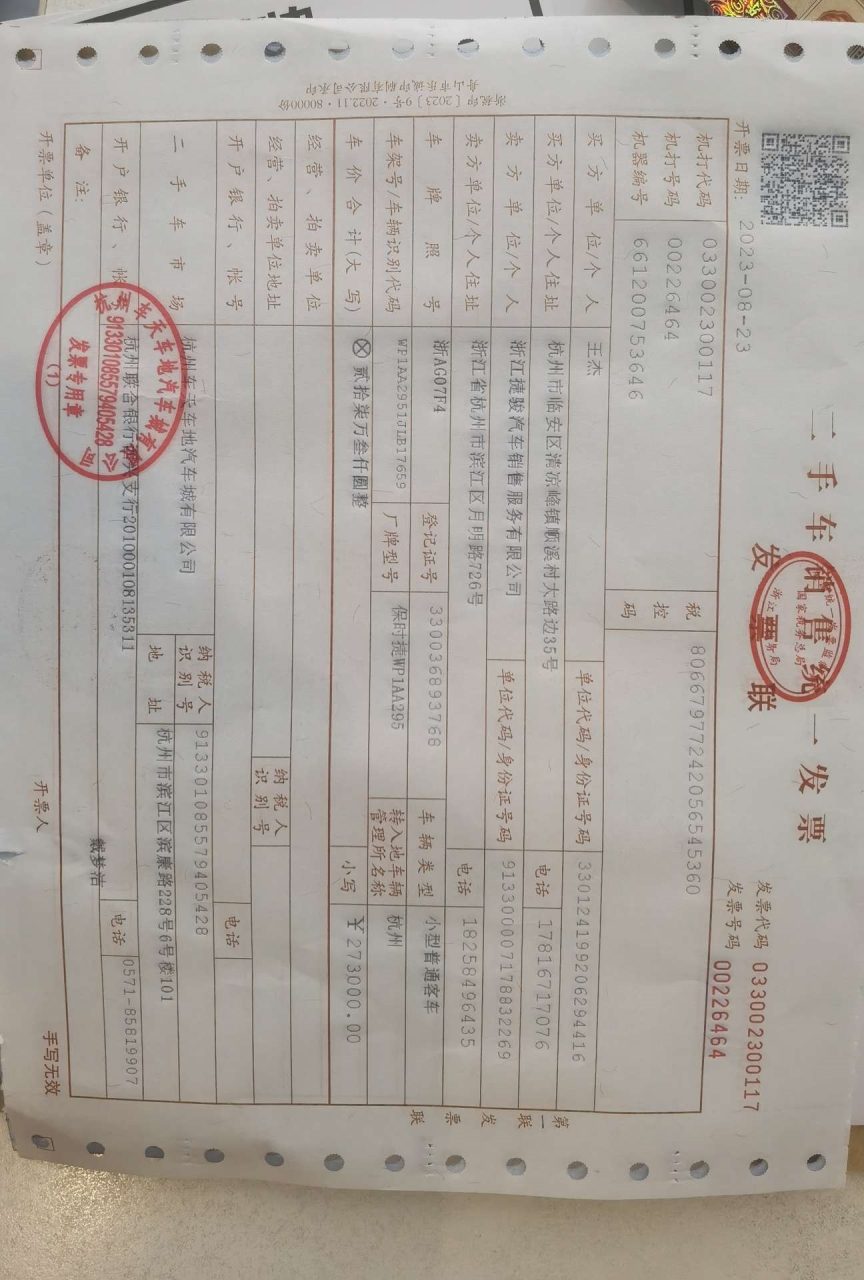 二手车销售统一发票
发票联
发票代码 033002300117
发票号码 00226464
开票日期: 2023-08-23
机打代码 033002300117
机打号码 00226464
机器编号 661200753646
税控码 80667977242056545360
买方单位/个人 王杰 单位代码/身份证号码 330124199206294416
买方单位/个人住址 杭州市临安区清凉峰镇顺溪村大路边35号 电话 17816717076
卖方单位/个人 浙江捷骏汽车销售服务有限公司 单位代码/身份证号码 913300007178832269
卖方单位/个人住址 浙江省杭州市滨江区月明路726号 电话 18258496435
车牌照号 浙AG07F4 登记证号 330036893768 车辆类型 小型普通客车
车架号/车辆识别代码 WP1AA2951JLB17659 厂牌型号 保时捷WP1AA295 转入地车辆管理所名称 杭州
车价合计(大写) ⊗贰拾柒万叁仟圆整 小写 ￥273000.00
经营、拍卖单位
经营、拍卖单位地址 纳税人识别号
开户银行、帐号 电话
二手车市场 杭州车天车地汽车城有限公司 纳税人识别号 913301085579405428
地址 杭州市滨江区滨康路228号6号楼101
开户银行、帐号 杭州联合银行 支行201000108135311 电话 0571-85819907
备注:
开票单位(盖章) 开票人 戴梦洁 手写无效
第一联 发票联
浙税印[2023]9号·2022.11·80000份
舟山市乐诚印刷有限公司承印
国家税务总局
913301085579405428
发票专用章
(1)